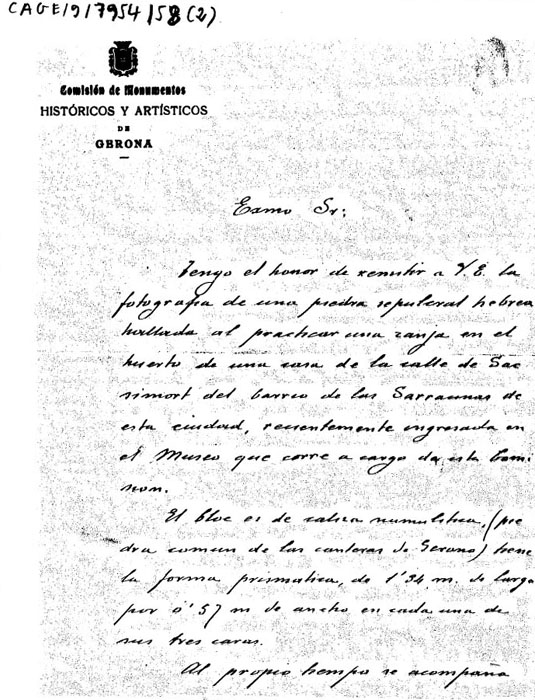 CAGE/9/7954/58(2)
Comisión de Monumentos
HISTÓRICOS Y ARTÍSTICOS
DE
GERONA
Exmo Sr:
Tengo el honor de remitir a V. E. la
fotografia de una piedra sepulcral hebrea
hallada al practicar una zanja en el
huerto de una casa de la calle de Sac
simort del barrio de las Sarracinas de
esta ciudad, recientemente ingresada en
el Museo que corre a cargo de esta Comi
sion.
El bloc es de caliza numulitica, (pie
dra comun de las canteras de Gerona) tiene
la forma prismatica, de 1'34 m. de largo
por 0'57 m de ancho en cada una de
sus tres caras.
Al propio tiempo se acompaña